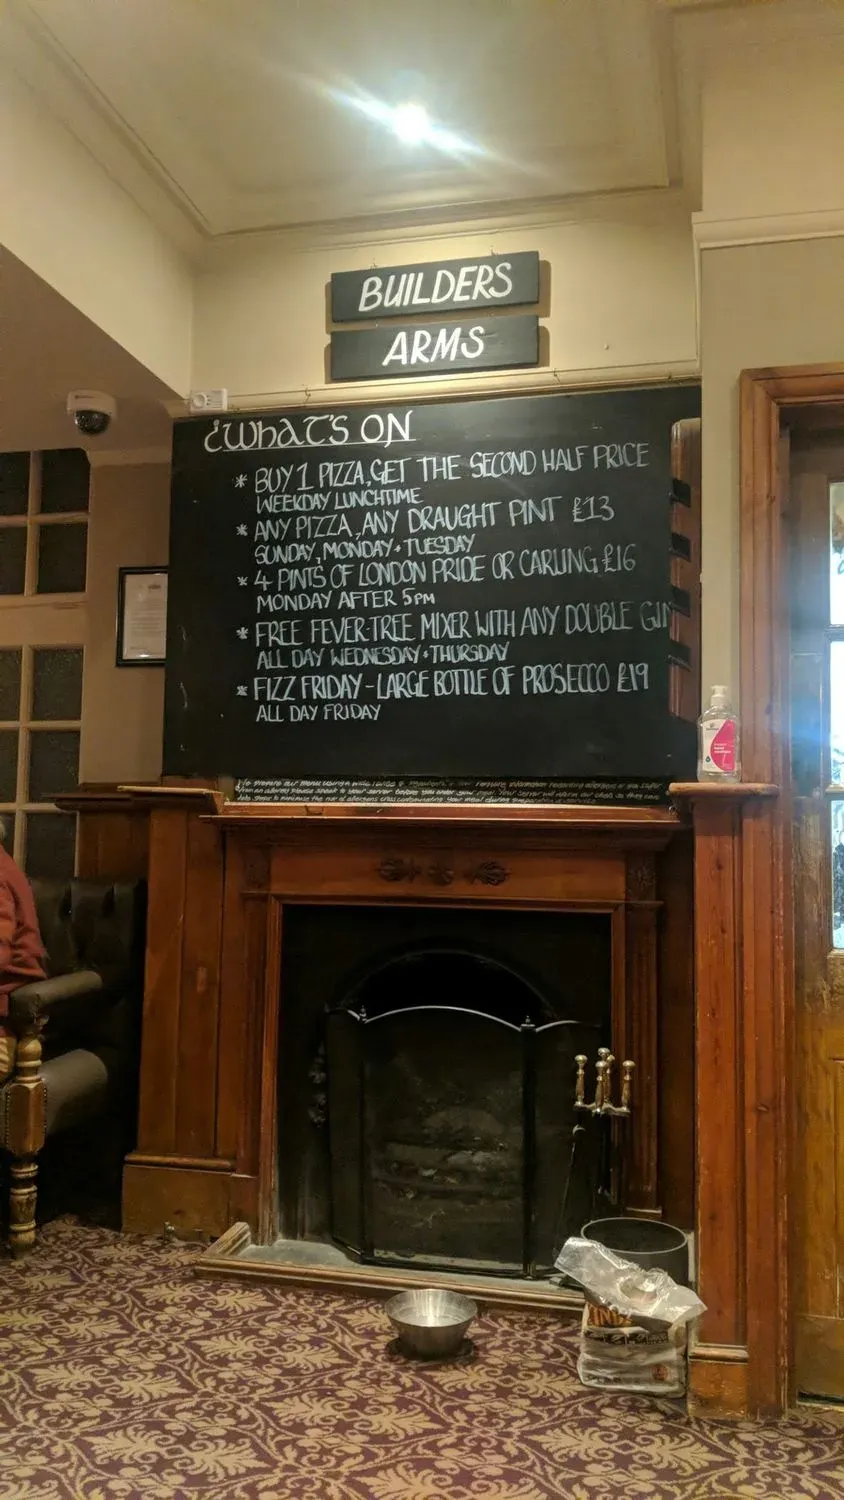 BUILDERS
ARMS
¿WHAT'S ON
* BUY 1 PIZZA, GET THE SECOND HALF PRICE
WEEKDAY LUNCHTIME
* ANY PIZZA, ANY DRAUGHT PINT £13
SUNDAY, MONDAY + TUESDAY
* 4 PINTS OF LONDON PRIDE OR CARLING £16
MONDAY AFTER 5PM
* FREE FEVER-TREE MIXER WITH ANY DOUBLE GIN
ALL DAY WEDNESDAY + THURSDAY
* FIZZ FRIDAY - LARGE BOTTLE OF PROSECCO £19
ALL DAY FRIDAY